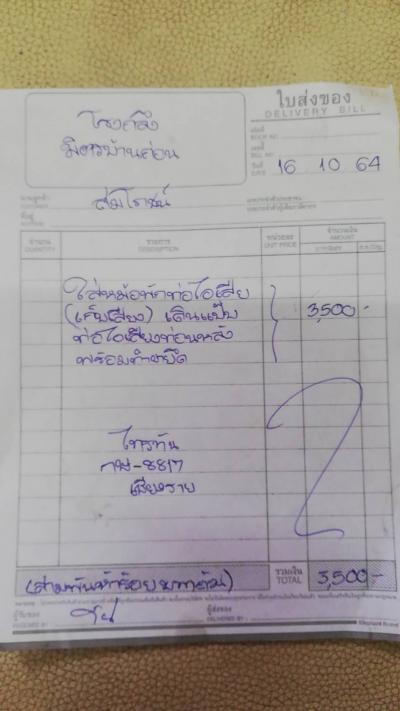 ใบส่งของ
DELIVERY BILL
โรงกลึง
มิตรบ้านก่อน
เล่มที่
BOOK NO.
เลขที่
BILL NO.
วันที่
DATE 16 10 64
นามลูกค้า สมโรชน์
ที่อยู่
จำนวน
QUANTITY
รายการ
DESCRIPTION
หน่วยละ
UNIT PRICE
จำนวนเงิน
AMOUNT
ใส่หม้อพักท่อไอเสีย
(เก็บเสียง) เดินแป๊บ 3,500.-
ท่อไอเสียท่อนหลัง
พร้อมทำขายึด
ไทรทัน
8817
เชียงราย
(สามพันห้าร้อยบาทถ้วน)
รวมเงิน
TOTAL 3,500.-
ผู้รับของ
RECEIVED BY
ผู้ส่งของ
DELIVERED BY
Elephant Brand